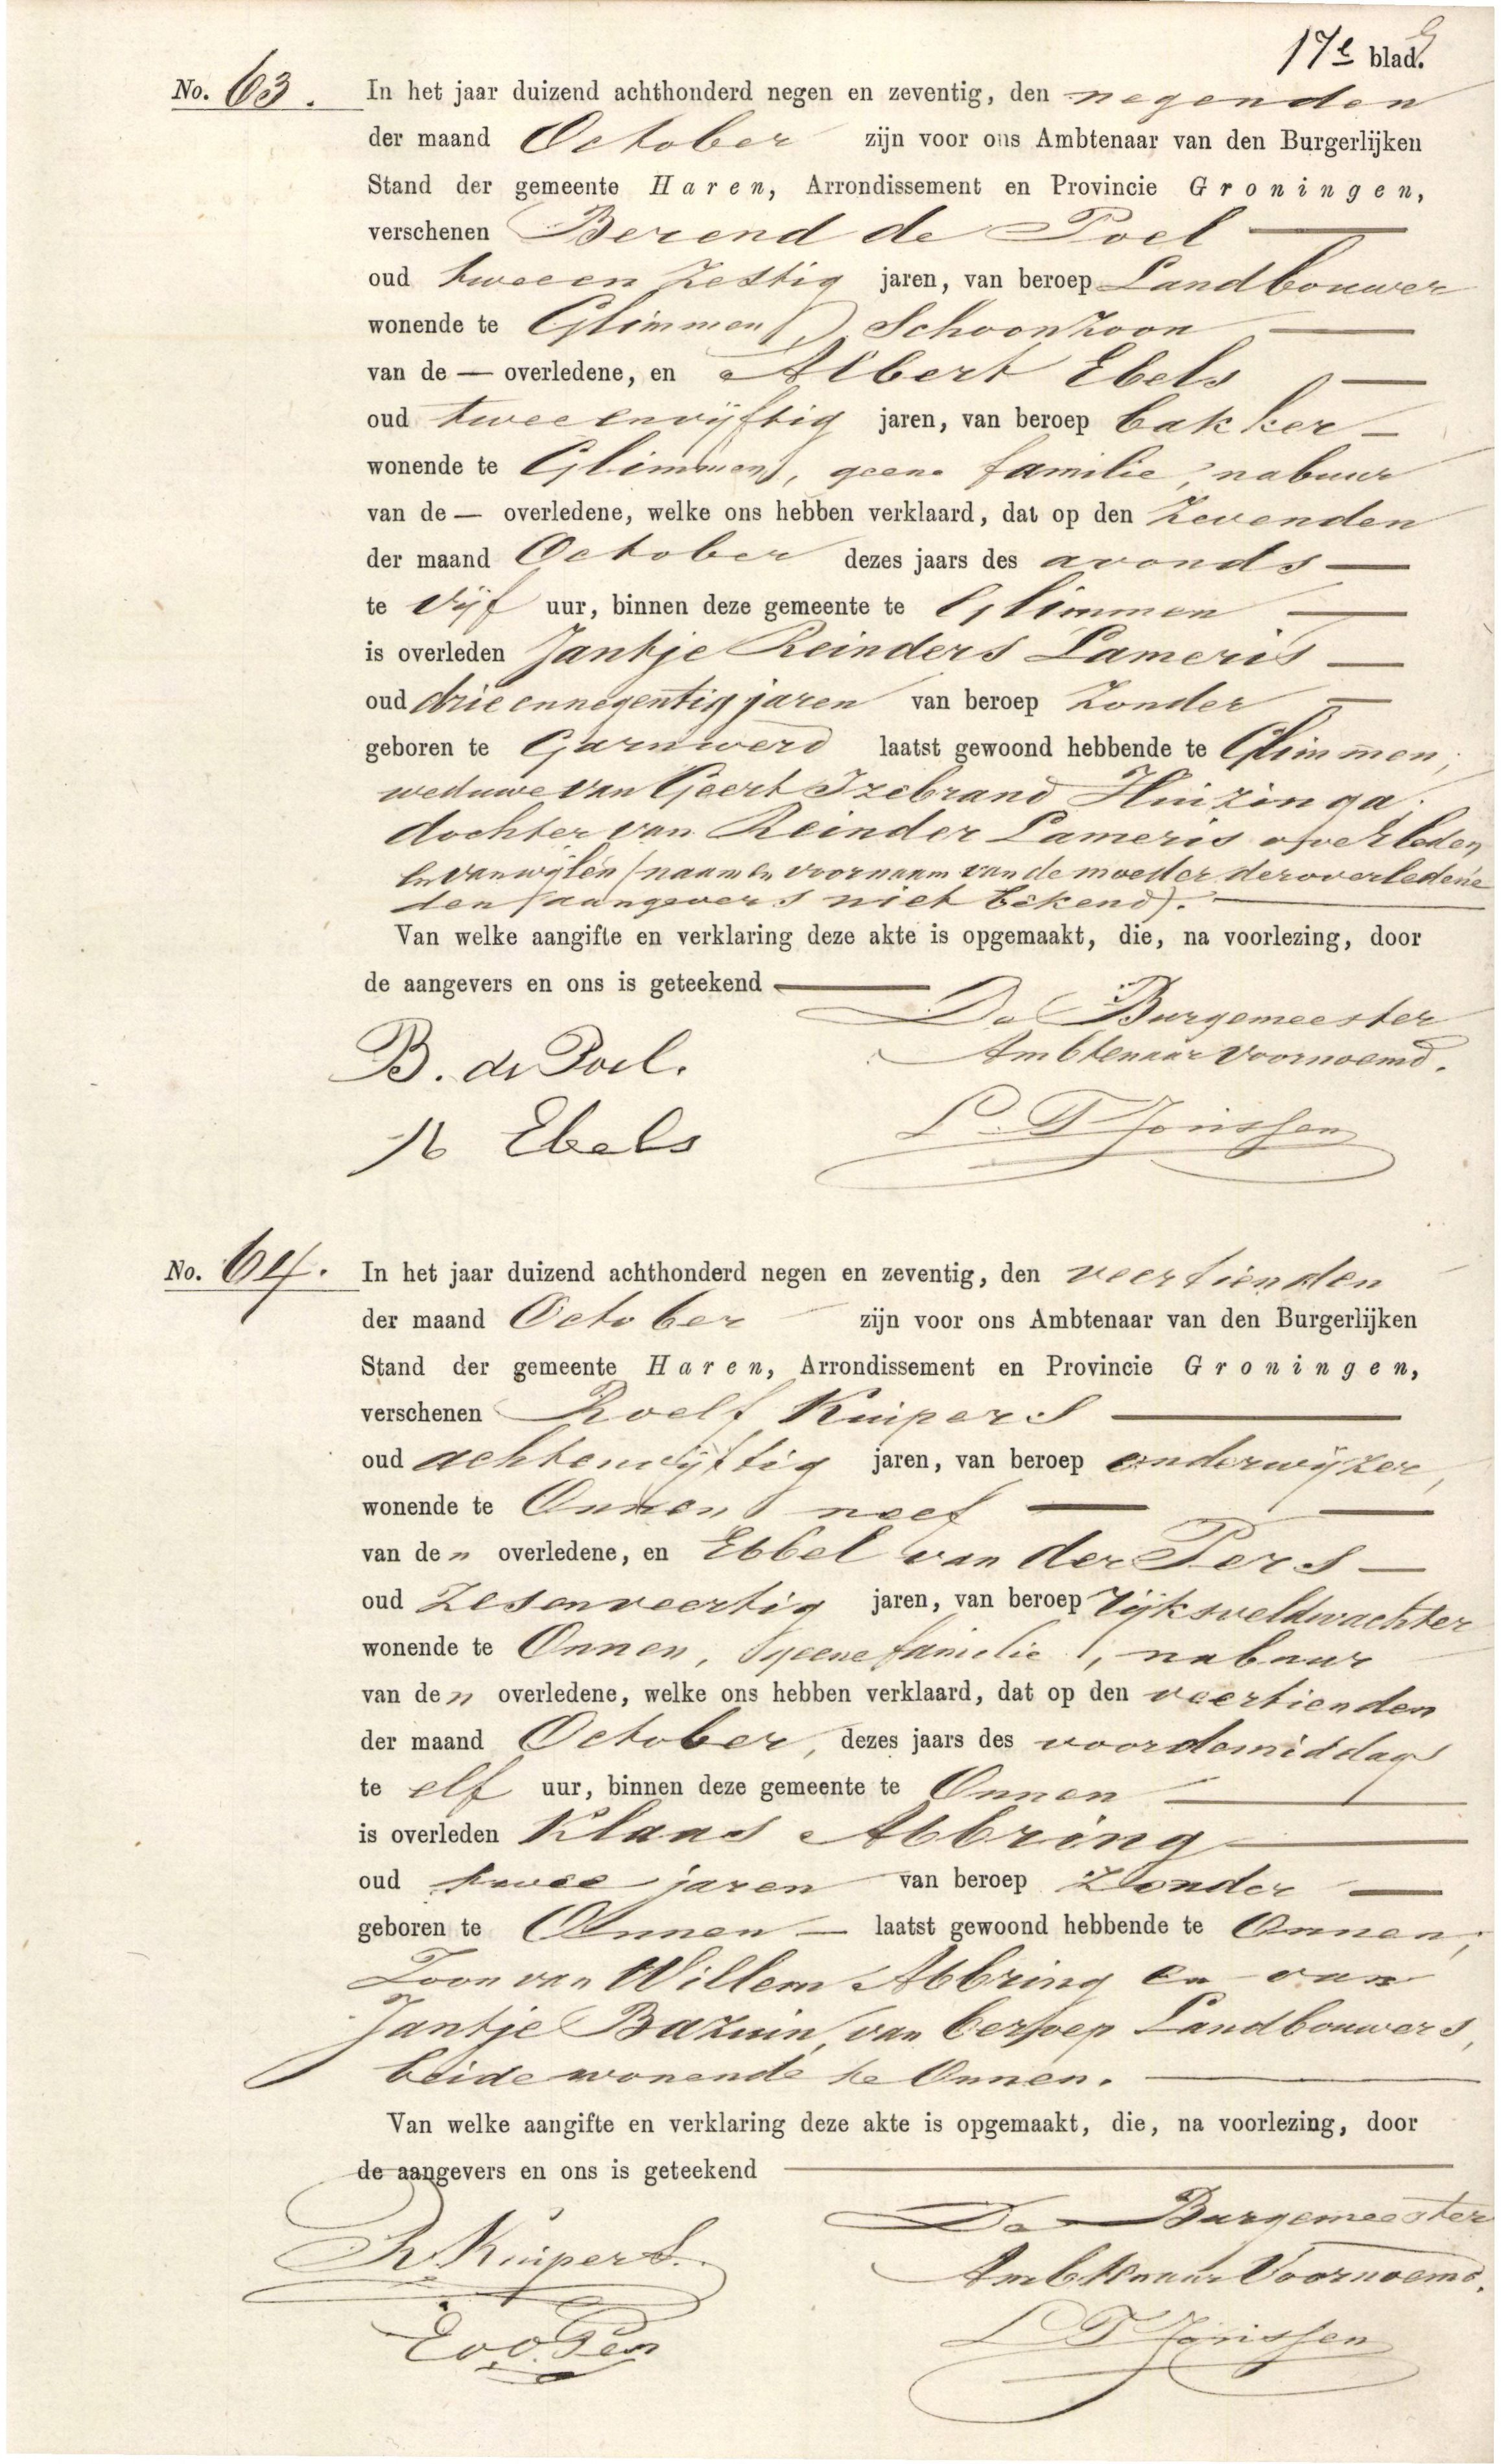 17e blad.
No. 63. In het jaar duizend achthonderd negen en zeventig, den negenden
der maand October zijn voor ons Ambtenaar van den Burgerlijken
Stand der gemeente Haren, Arrondissement en Provincie Groningen,
verschenen Berend de Poel
oud tweeen zestig jaren, van beroep Landbouwer
wonende te Glimmen, Schoonzoon
van de — overledene, en Albert Ebels
oud tweeenvijftig jaren, van beroep bakker
wonende te Glimmen, geene familie, nabuur
van de — overledene, welke ons hebben verklaard, dat op den Zevenden
der maand October dezes jaars des avonds
te vijf uur, binnen deze gemeente te Glimmen
is overleden Jantje Reinders Lameris
oud drieennegentig jaren van beroep Zonder
geboren te Garnwerd laatst gewoond hebbende te Glimmen,
weduwe van Geert Izebrand Huizinga.
dochter van Reinder Lameris overleden
en van wijlen (naam en voornaam van de moeder der overledene
den aangevers niet bekend).
Van welke aangifte en verklaring deze akte is opgemaakt, die, na voorlezing, door
de aangevers en ons is geteekend
De Burgemeester
Ambtenaar voornoemd.
B. de Poel.
A Ebels
Jorissen
No. 64. In het jaar duizend achthonderd negen en zeventig, den veertienden
der maand October zijn voor ons Ambtenaar van den Burgerlijken
Stand der gemeente Haren, Arrondissement en Provincie Groningen,
verschenen Roelf Kuipers
oud achtenvijftig jaren, van beroep onderwijzer,
wonende te Onnen neef
van den overledene, en Ebbel van der Pers
oud Zesenveertig jaren, van beroep Rijksveldwachter
wonende te Onnen, geene familie, nabuur
van den overledene, welke ons hebben verklaard, dat op den veertienden
der maand October, dezes jaars des voordemiddags
te elf uur, binnen deze gemeente te Onnen
is overleden Klaas Abbring
oud twee jaren van beroep Zonder
geboren te Onnen — laatst gewoond hebbende te Onnen,
Zoon van Willem Abbring en van
Jantje Bazuin, van beroep Landbouwers,
beide wonende te Onnen.
Van welke aangifte en verklaring deze akte is opgemaakt, die, na voorlezing, door
de aangevers en ons is geteekend
De Burgemeester
R. Kuipers.
Ambtenaar Voornoemd.
Jorissen